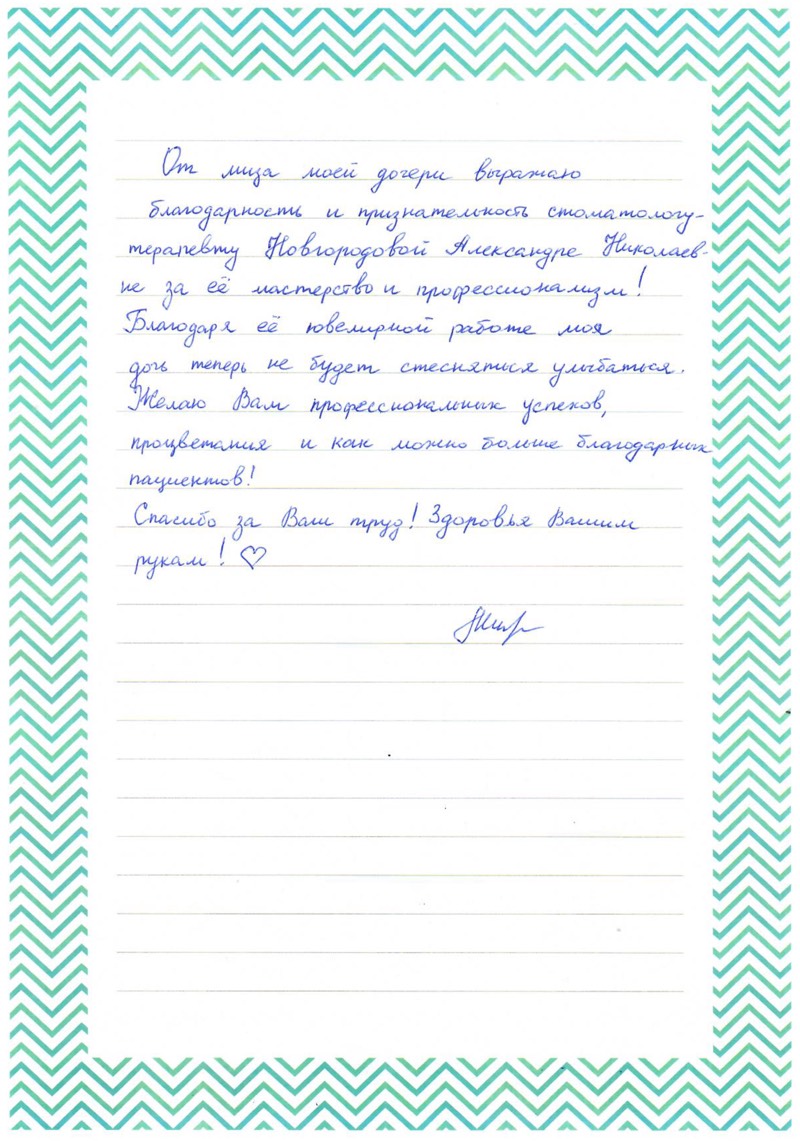 От лица моей дочери выражаю
благодарность и признательность стоматологу-
терапевту Новгородовой Александре Николаев-
не за её мастерство и профессионализм!
Благодаря её ювелирной работе моя
дочь теперь не будет стесняться улыбаться.
Желаю Вам профессиональных успехов,
процветания и как можно больше благодарных
пациентов!
Спасибо за Ваш труд! Здоровья Вашим
рукам! ♡